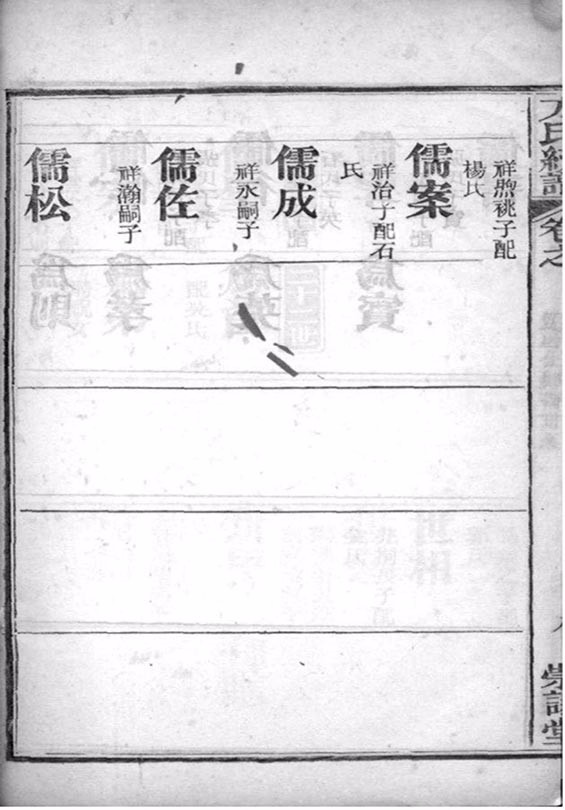 卷之
堂
祥煦祧子配
楊氏
儒案
祥治子配石
氏
儒成
祥永嗣子
儒佐
祥瀚嗣子
儒松